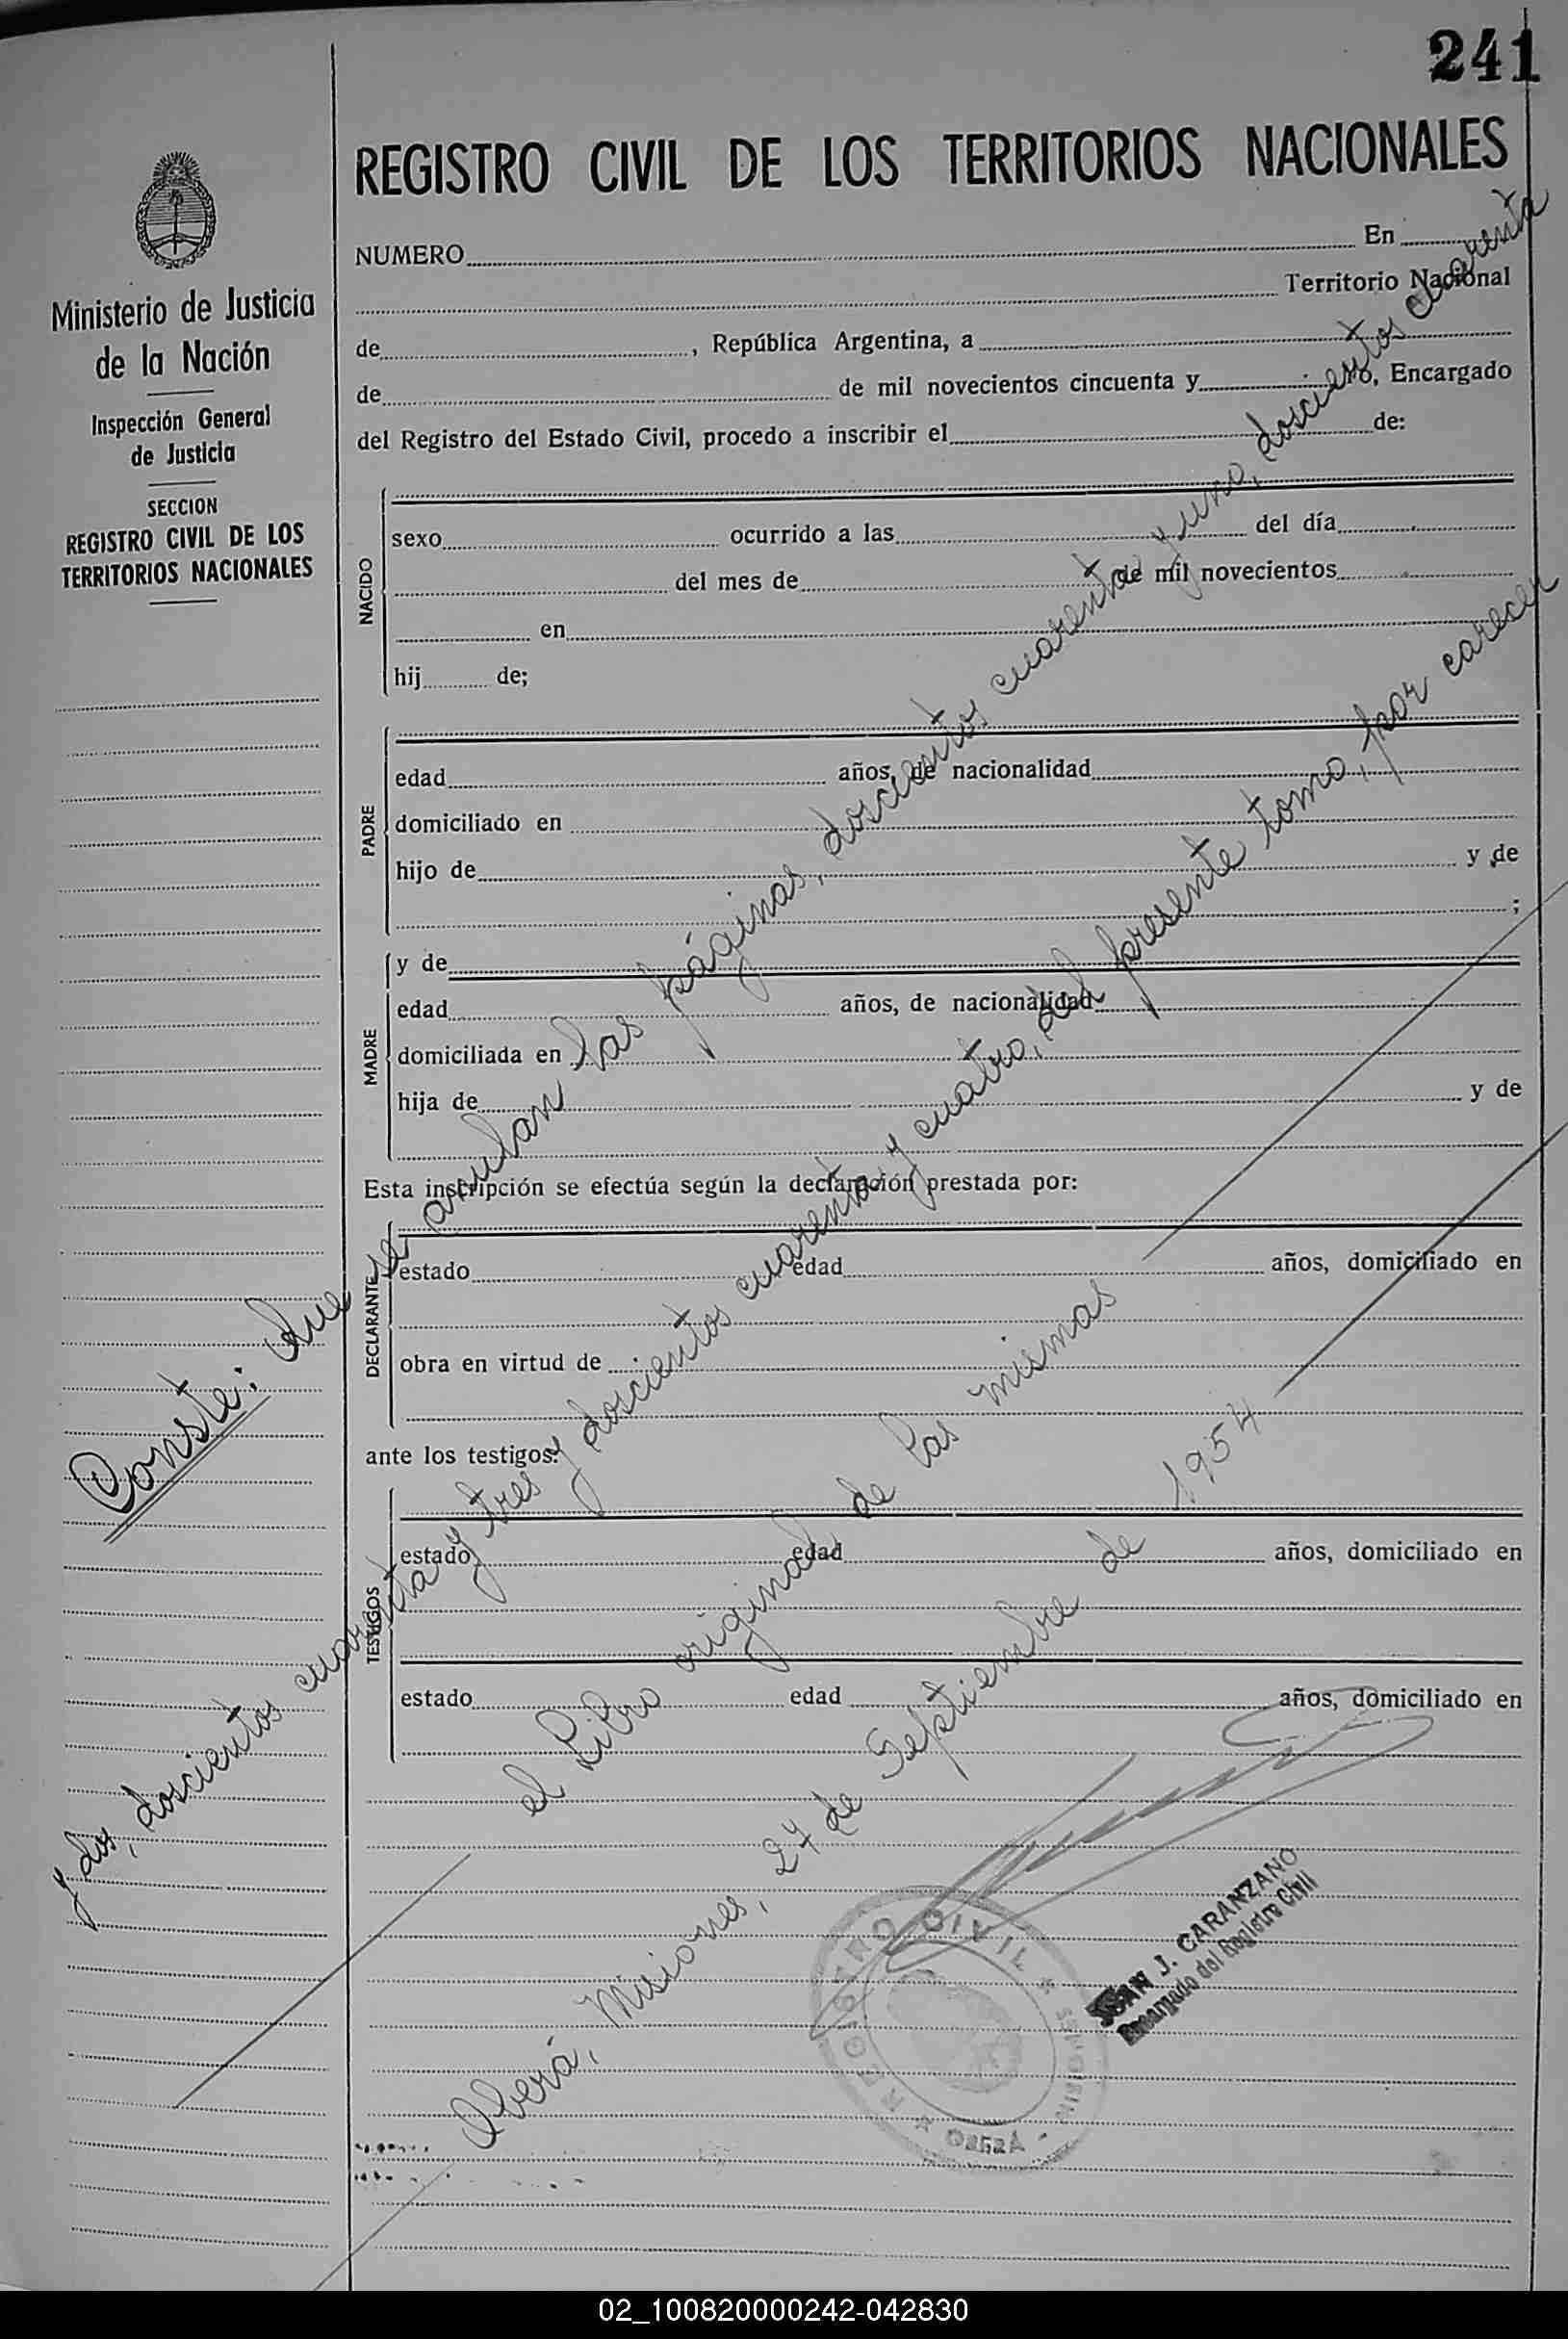 241
Ministerio de Justicia
de la Nación
Inspección General
de Justicia
SECCION
REGISTRO CIVIL DE LOS
TERRITORIOS NACIONALES
REGISTRO CIVIL DE LOS TERRITORIOS NACIONALES
NUMERO En
Territorio Nacional
de , República Argentina, a
de de mil novecientos cincuenta y Yo, Encargado
del Registro del Estado Civil, procedo a inscribir el de:
NACIDO
sexo ocurrido a las del día
del mes de de mil novecientos
en
hij de;
PADRE
edad años, de nacionalidad
domiciliado en
hijo de y de
;
MADRE
y de
edad años, de nacionalidad
domiciliada en
hija de y de
Esta inscripción se efectúa según la declaración prestada por:
DECLARANTE
estado edad años, domiciliado en
obra en virtud de
ante los testigos:
TESTIGOS
estado edad años, domiciliado en
estado edad años, domiciliado en
Conste: Que se anulan las páginas, doscientos cuarenta y uno, doscientos cuarenta
y dos, doscientos cuarenta y tres y doscientos cuarenta y cuatro, del presente tomo, por carecer
el Libro original de las mismas
Oberá, Misiones, 27 de Septiembre de 1954
REGISTRO CIVIL
MISIONES
OBERÁ
JUAN J. CARANZANO
Encargado del Registro Civil
02_100820000242-042830